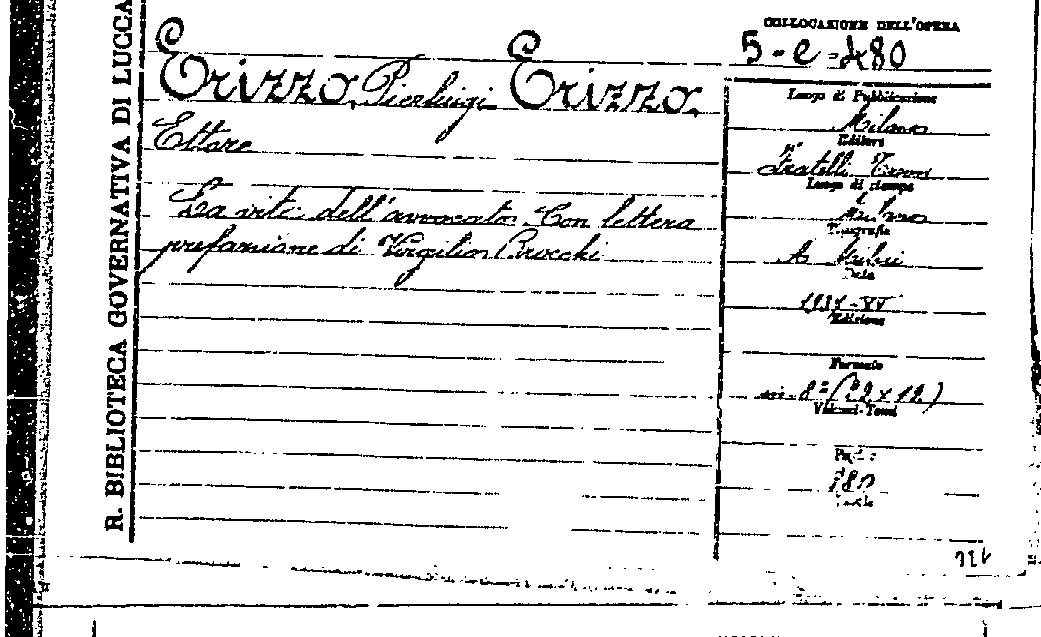 R. BIBLIOTECA GOVERNATIVA DI LUCCA
COLLOCAZIONE DELL'OPERA
5-e-480
Erizzo Pierluigi Erizzo
Ettore
La vita dell'avvocato. Con lettera
prefazione di Virgilio Brocchi
Luogo di Pubblicazione
Milano
Editore
Fratelli Treves
Luogo di stampa
Milano
Tipografia
A.
Data
1937-XV
Edizione
Formato
in-8° (22 x 12)
Volumi-Tomi
Pagine
180
Tavole